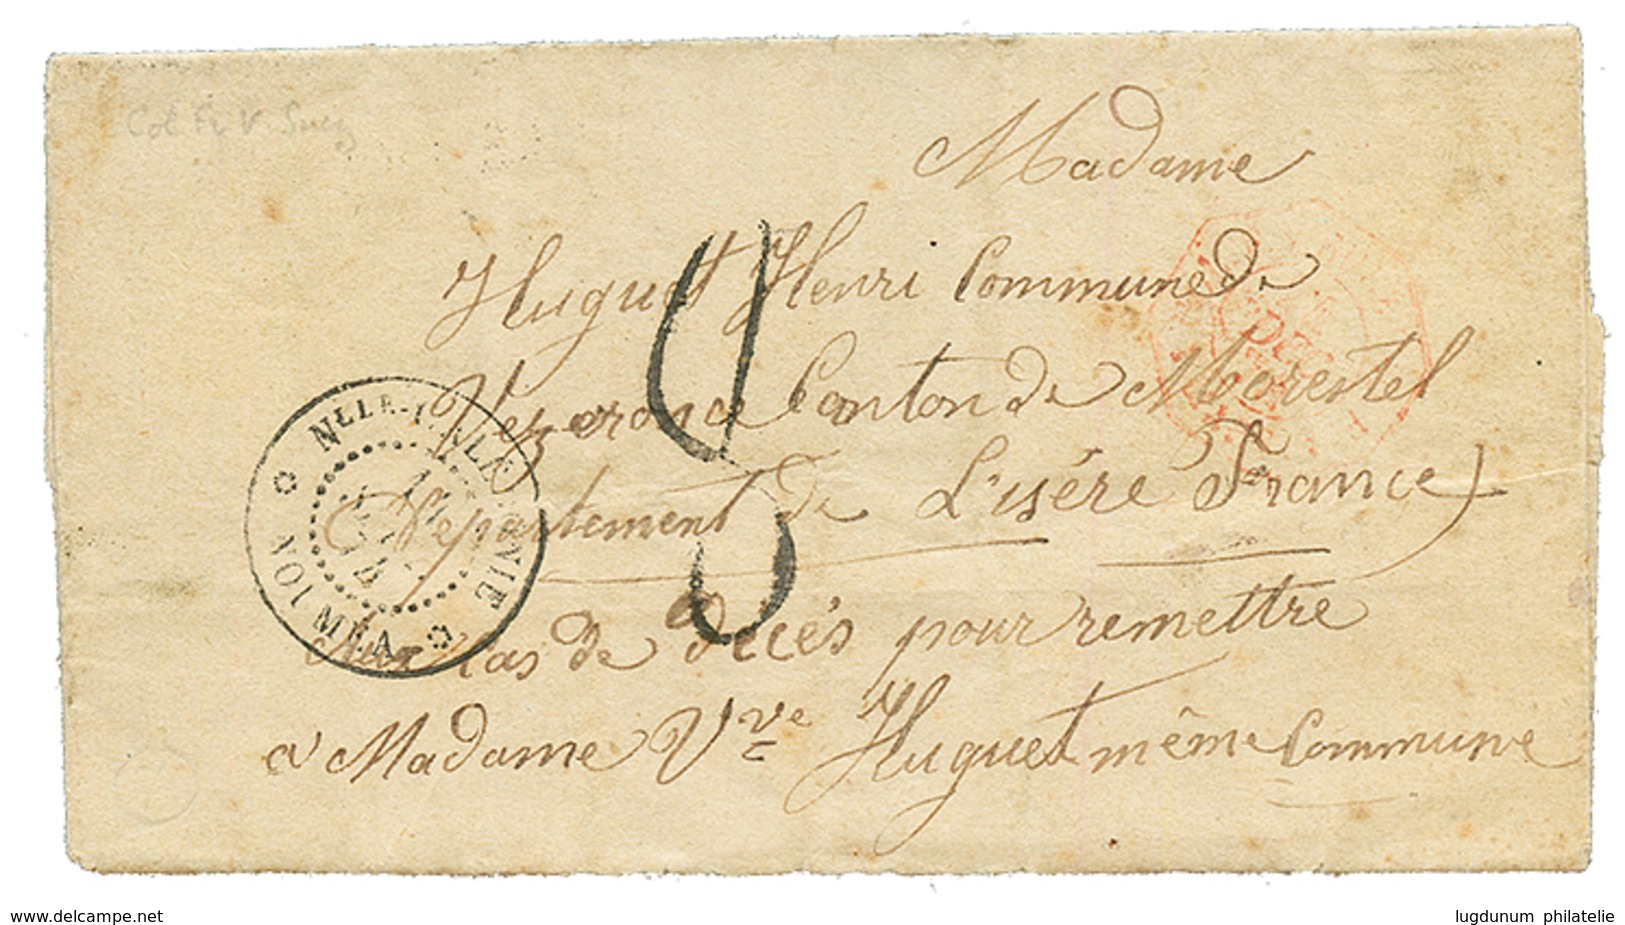 Col Fr V Suez
Madame
Huguet Henri Commune de
Vezeronce Canton de Morestel
Département de L'isére France
Aux Cas de decés pour remettre
a Madame Vve Huguet même Commune
NLLE-CALEDONIE
NOUMEA
www.delcampe.net
lugdunum philatelie